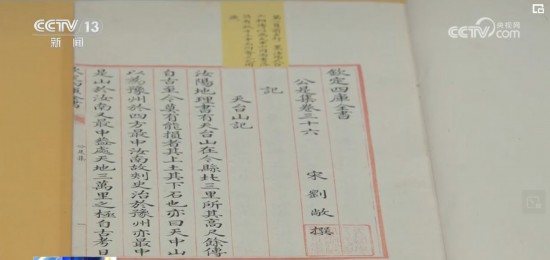 CCTV 13
新闻
央视网
CCTV.com
欽定四庫全書
公是集卷三十六
宋 劉敞 撰
記
天台山記
汝陽地理書有天台山在今縣北三里所其高尺餘傳
自古至今莫有能損者其上土其下石也亦曰天中山
以為豫州於四方最中汝南故刺史治於豫州亦最中
是山於汝南又最中蓋處天地三萬里之極自古考日